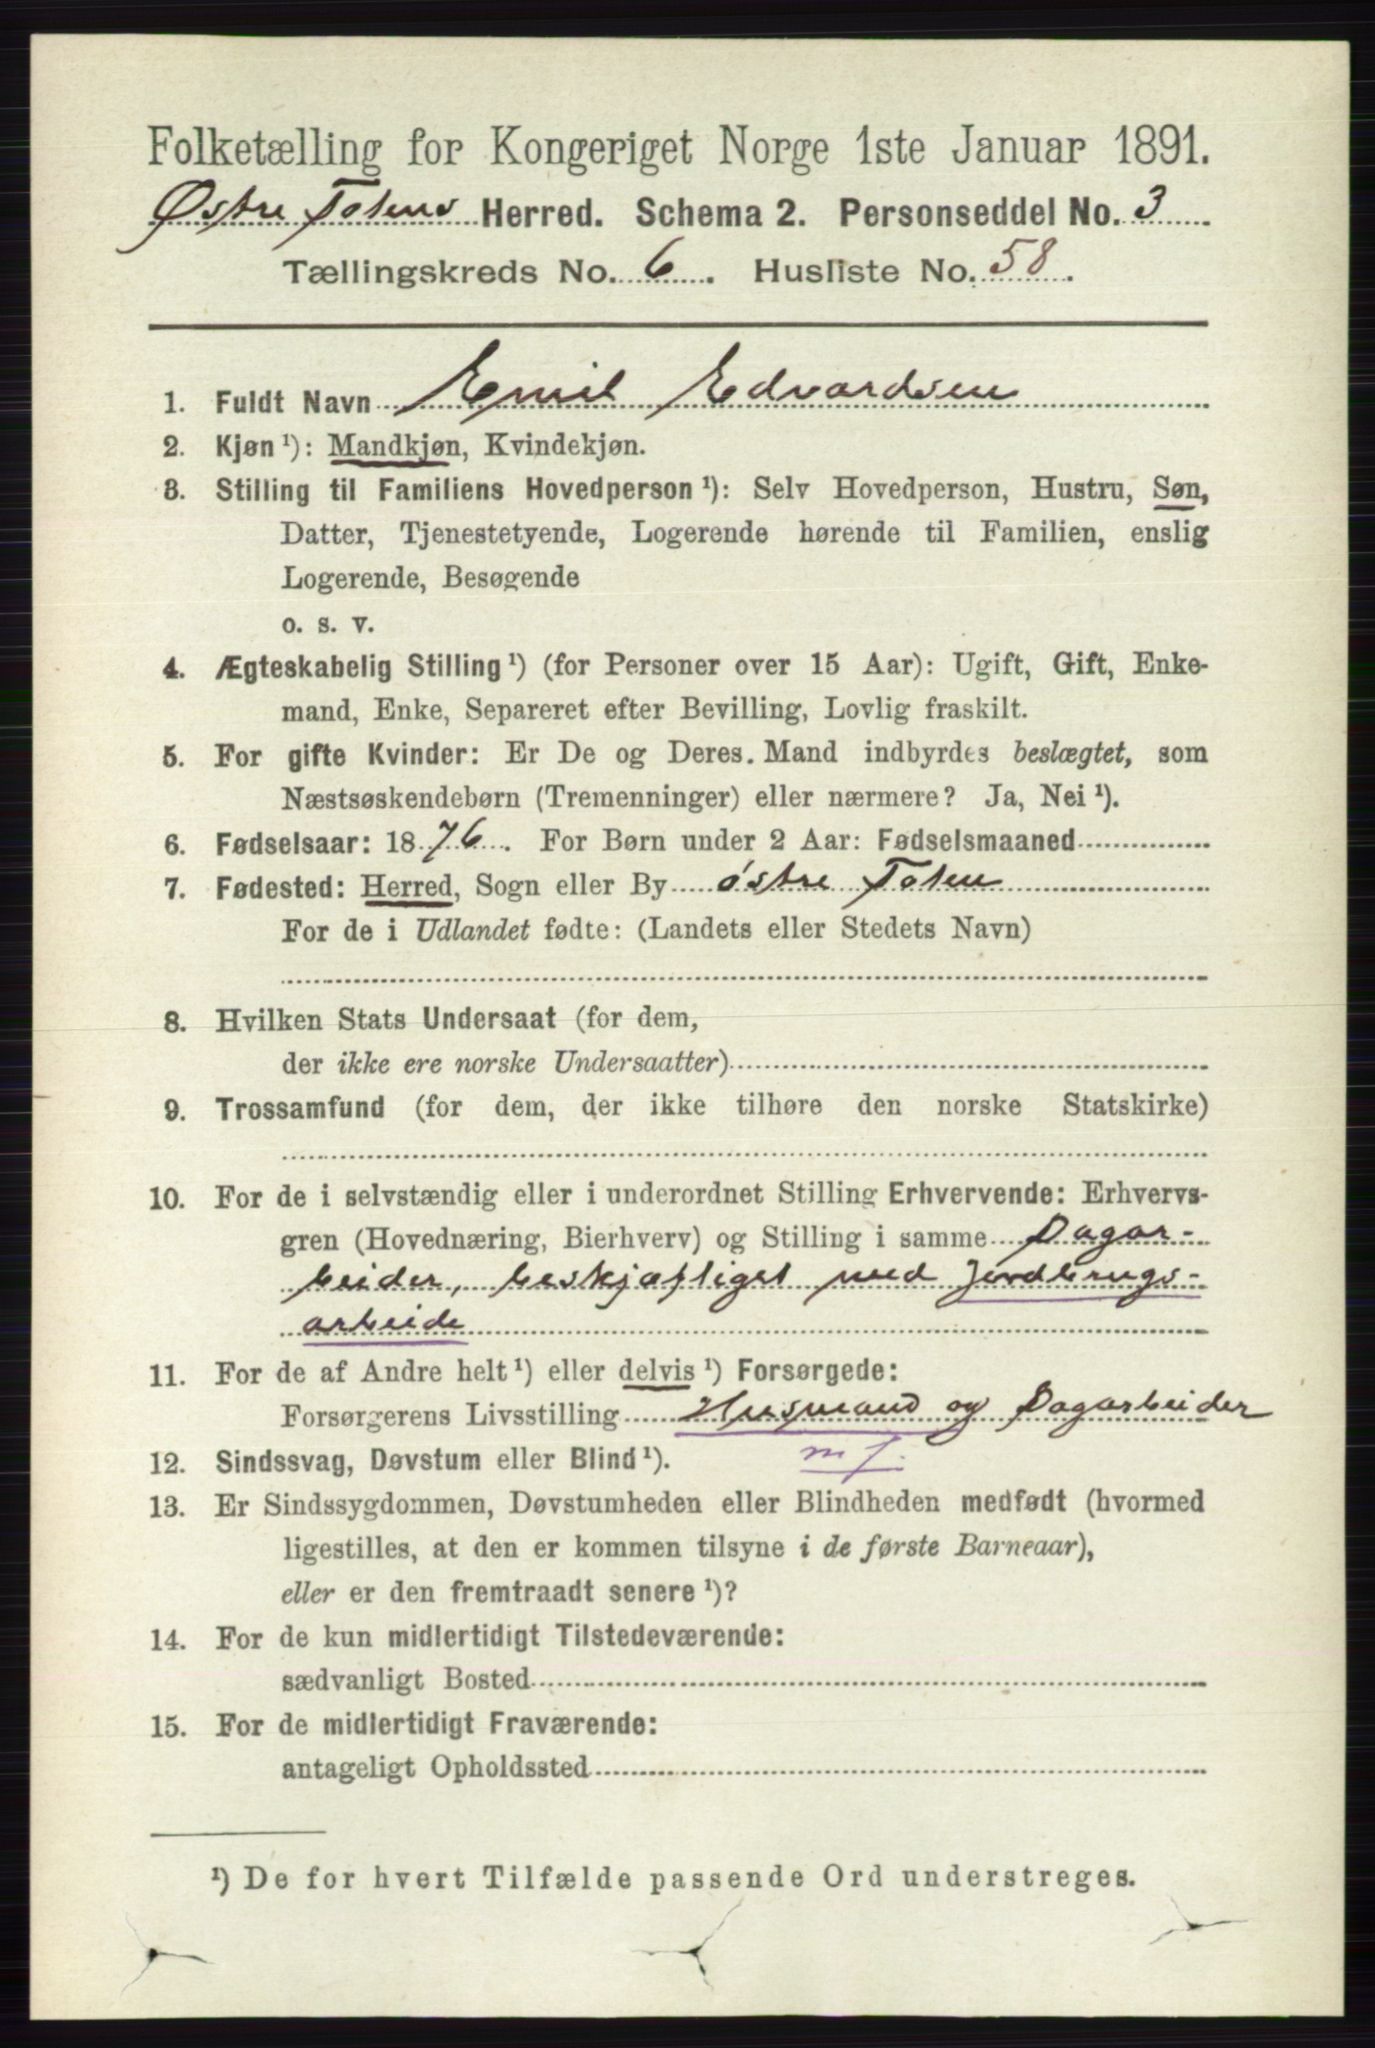 Folketælling for Kongeriget Norge 1ste Januar 1891.
Østre Totens Herred. Schema 2. Personseddel No. 3
Tællingskreds No. 6. Husliste No. 58.
1. Fuldt Navn Emil Edvardsen
2. Kjøn ¹): Mandkjøn, Kvindekjøn.
3. Stilling til Familiens Hovedperson ¹): Selv Hovedperson, Hustru, Søn,
Datter, Tjenestetyende, Logerende hørende til Familien, enslig
Logerende, Besøgende
o. s. v.
4. Ægteskabelig Stilling ¹) (for Personer over 15 Aar): Ugift, Gift, Enke-
mand, Enke, Separeret efter Bevilling, Lovlig fraskilt.
5. For gifte Kvinder: Er De og Deres Mand indbyrdes beslægtet, som
Næstsøskendebørn (Tremenninger) eller nærmere? Ja, Nei ¹).
6. Fødselsaar: 1876. For Børn under 2 Aar: Fødselsmaaned
7. Fødested: Herred, Sogn eller By østre Toten
For de i Udlandet fødte: (Landets eller Stedets Navn)
8. Hvilken Stats Undersaat (for dem,
der ikke ere norske Undersaatter)
9. Trossamfund (for dem, der ikke tilhøre den norske Statskirke)
10. For de i selvstændig eller i underordnet Stilling Erhvervende: Erhvervs-
gren (Hovednæring, Bierhverv) og Stilling i samme Dagar-
beider, beskjæftiget med Jordbrugs-
arbeide
11. For de af Andre helt ¹) eller delvis ¹) Forsørgede:
Forsørgerens Livsstilling Husmand og Dagarbeider
12. Sindssvag, Døvstum eller Blind ¹). m f.
13. Er Sindssygdommen, Døvstumheden eller Blindheden medfødt (hvormed
ligestilles, at den er kommen tilsyne i de første Barneaar),
eller er den fremtraadt senere ¹)?
14. For de kun midlertidigt Tilstedeværende:
sædvanligt Bosted
15. For de midlertidigt Fraværende:
antageligt Opholdssted
¹) De for hvert Tilfælde passende Ord understreges.